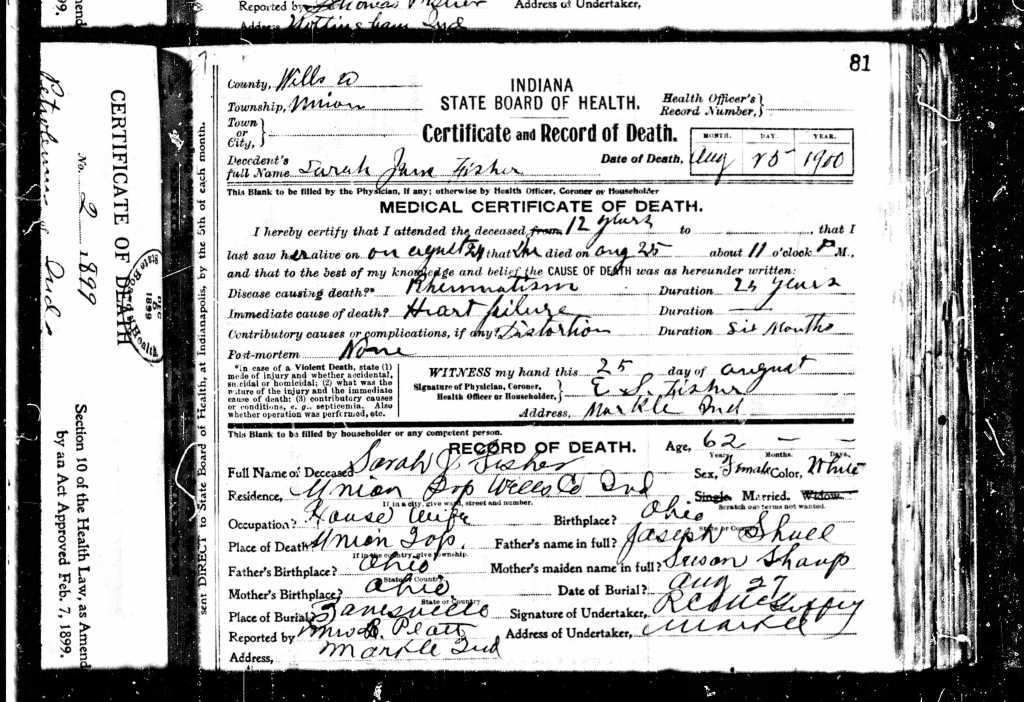 Reported by Thomas
Address of Undertaker,
Nottingham Ind
81
County, Wells Co
Township, Union
Town
or
City,
INDIANA
STATE BOARD OF HEALTH.
Certificate and Record of Death.
Health Officer's
Record Number,
Date of Death,
MONTH. DAY. YEAR.
Aug 25 1900
Decedent's
full Name Sarah Jane Fisher
This Blank to be filled by the Physician, if any; otherwise by Health Officer, Coroner or Householder
MEDICAL CERTIFICATE OF DEATH.
I hereby certify that I attended the deceased from 12 years to , that I
last saw her alive on on August 24 that she died on Aug 25 about 11 o'clock P M.,
and that to the best of my knowledge and belief the CAUSE OF DEATH was as hereunder written:
Disease causing death?* Rheumatism Duration 25 years
Immediate cause of death? Heart failure Duration
Contributory causes or complications, if any? Distortion Duration Six Months
Post-mortem None
*In case of a Violent Death, state (1)
mode of injury and whether accidental,
suicidal or homicidal; (2) what was the
nature of the injury and the immediate
cause of death; (3) contributory causes
or conditions, e. g., septicemia. Also
whether operation was performed, etc.
WITNESS my hand this 25 day of August
Signature of Physician, Coroner,
Health Officer or Householder,
E S. Fisher
Address, Markle Ind
This Blank to be filled by householder or any competent person.
RECORD OF DEATH.
Age, 62 — —
Years. Months. Days.
Full Name of Deceased Sarah J Fisher
Sex, Female Color, White
Residence, Union Top Wells Co Ind
If in a city, give ward, street and number.
Single. Married. Widow.
Scratch out terms not wanted.
Occupation? House Wife
Birthplace? Ohio
State or Country
Place of Death? Union Top.
If in the country, give township.
Father's name in full? Joseph
Father's Birthplace? Ohio
State or Country
Mother's maiden name in full? Susan Sharp
Mother's Birthplace? Ohio
State or Country
Date of Burial? Aug 27
Place of Burial? Zanesville
Signature of Undertaker,
Reported by Platt
Address of Undertaker, Markle
Address, Markle Ind
sent DIRECT to State Board of Health, at Indianapolis, by the 5th of each month.
CERTIFICATE OF DEATH
No. 2 1899
State Board of Health
1899
Section 10 of the Health Law, as Amend
by an Act Approved Feb. 7, 1899.